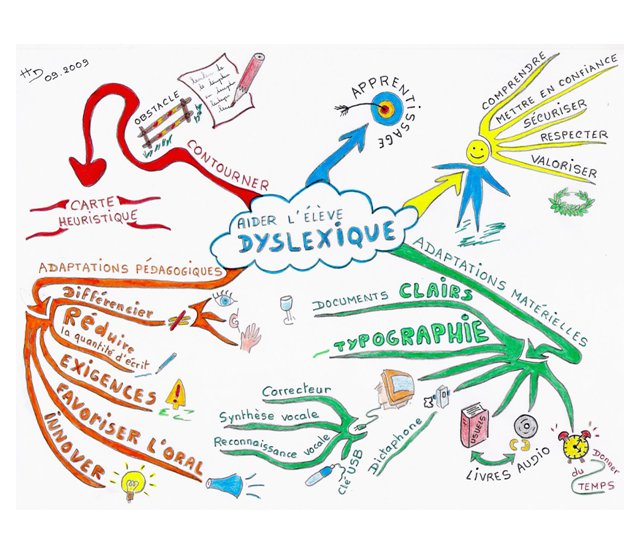 HD 09.2009
OBSTACLE
CONTOURNER
CARTE
HEURISTIQUE
APPRENTISSAGE
COMPRENDRE
METTRE EN CONFIANCE
SÉCURISER
RESPECTER
VALORISER
AIDER L'ÉLÈVE
DYSLEXIQUE
ADAPTATIONS PÉDAGOGIQUES
Différencier
Réduire
la quantité d'écrit
EXIGENCES
FAVORISER L'ORAL
INNOVER
ADAPTATIONS MATÉRIELLES
DOCUMENTS CLAIRS
TYPOGRAPHIE
Correcteur
Synthèse vocale
Reconnaissance vocale
Clé USB
Dictaphone
USUELS
LIVRES AUDIO
Donner
du
TEMPS